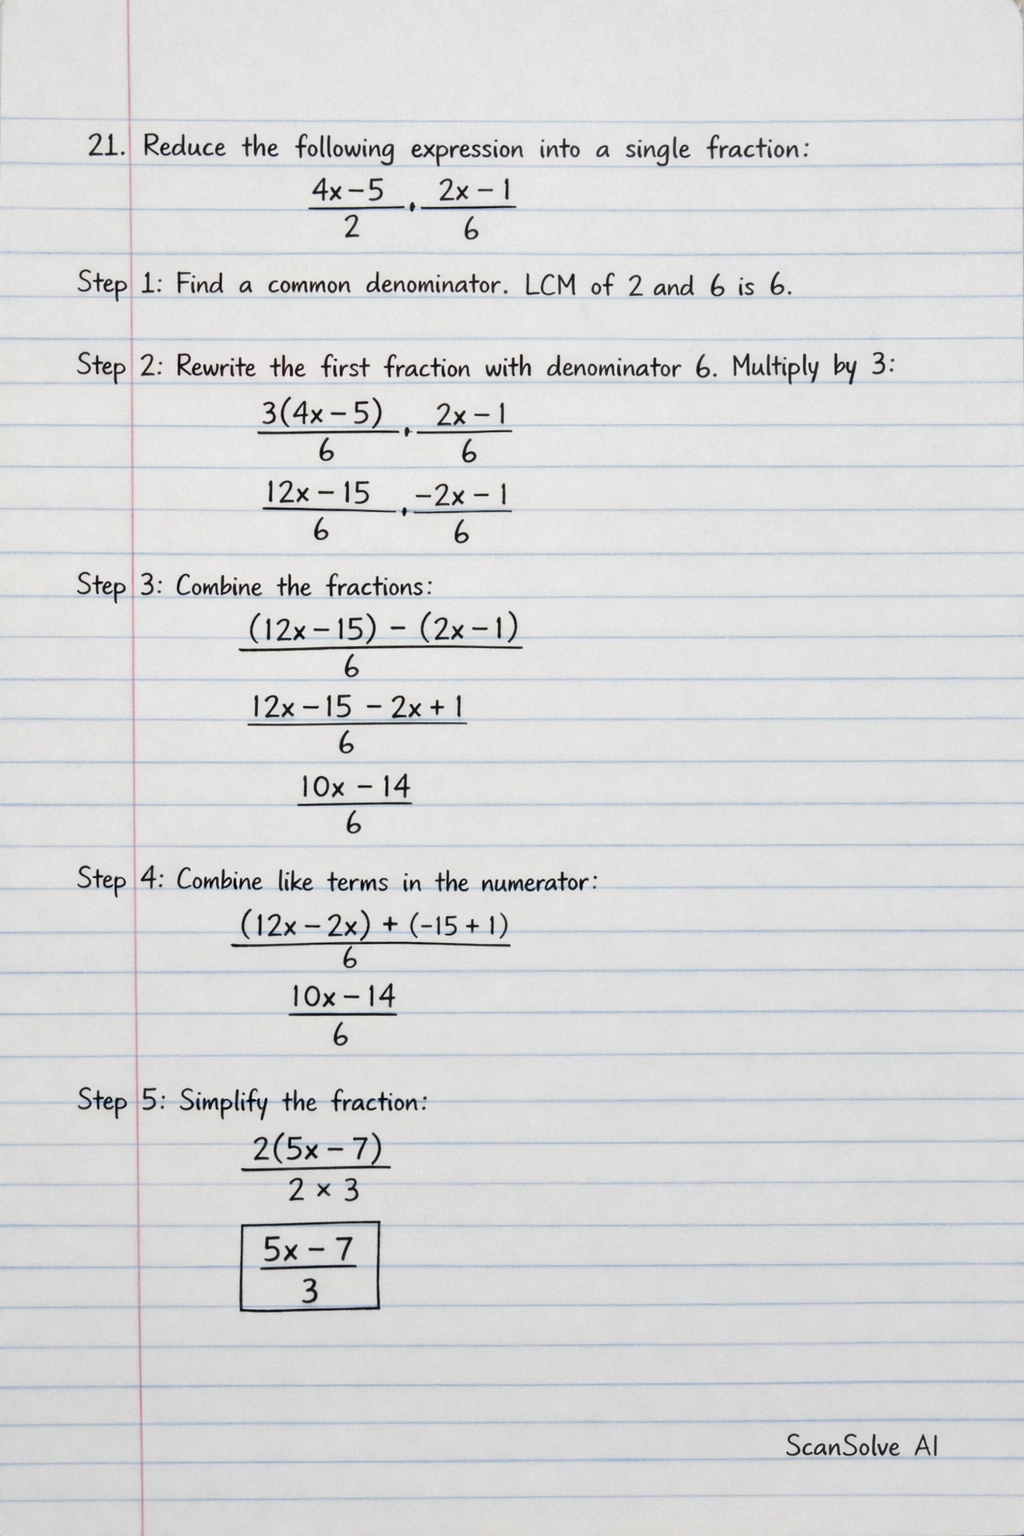 21. Reduce the following expression into a single fraction:
4x-5/2 . 2x-1/6
Step 1: Find a common denominator. LCM of 2 and 6 is 6.
Step 2: Rewrite the first fraction with denominator 6. Multiply by 3:
3(4x-5)/6 . 2x-1/6
12x-15/6 . -2x-1/6
Step 3: Combine the fractions:
(12x-15) - (2x-1)/6
12x-15 - 2x+1/6
10x - 14/6
Step 4: Combine like terms in the numerator:
(12x-2x) + (-15+1)/6
10x-14/6
Step 5: Simplify the fraction:
2(5x-7)/2 × 3
5x-7/3
ScanSolve AI